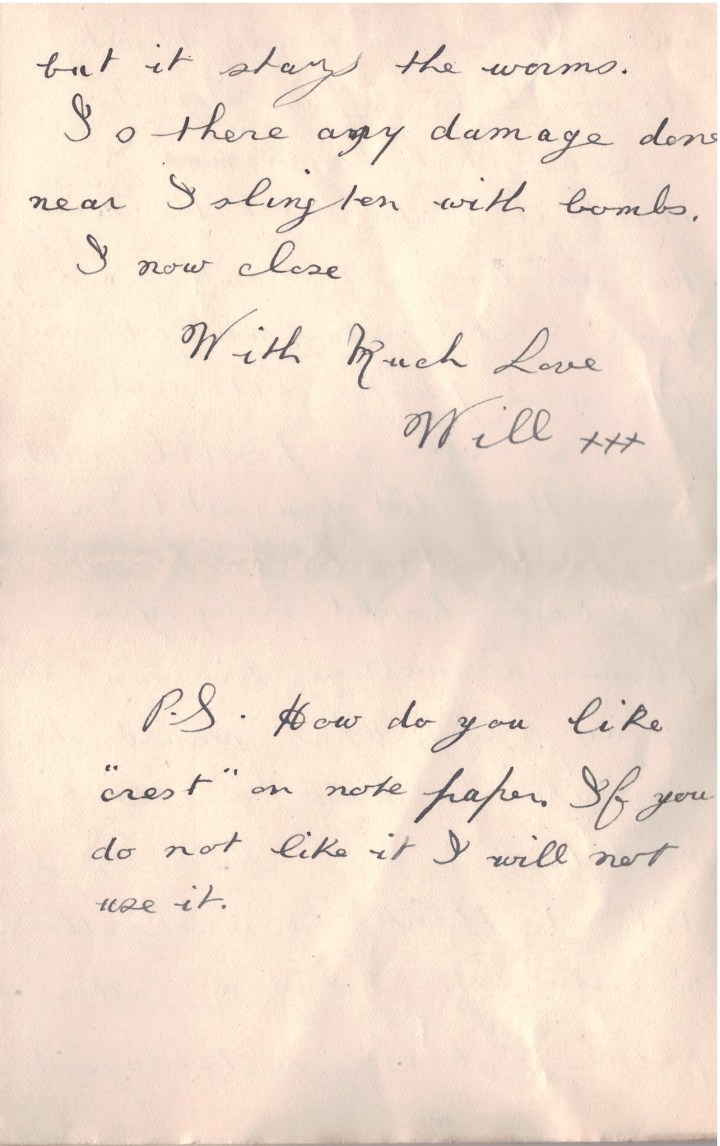 but it stays the worms.
Is there any damage done
near Islington with bombs.
I now close
With Much Love
Will xxx
P.S. How do you like
"crest" on note paper. If you
do not like it I will not
use it.